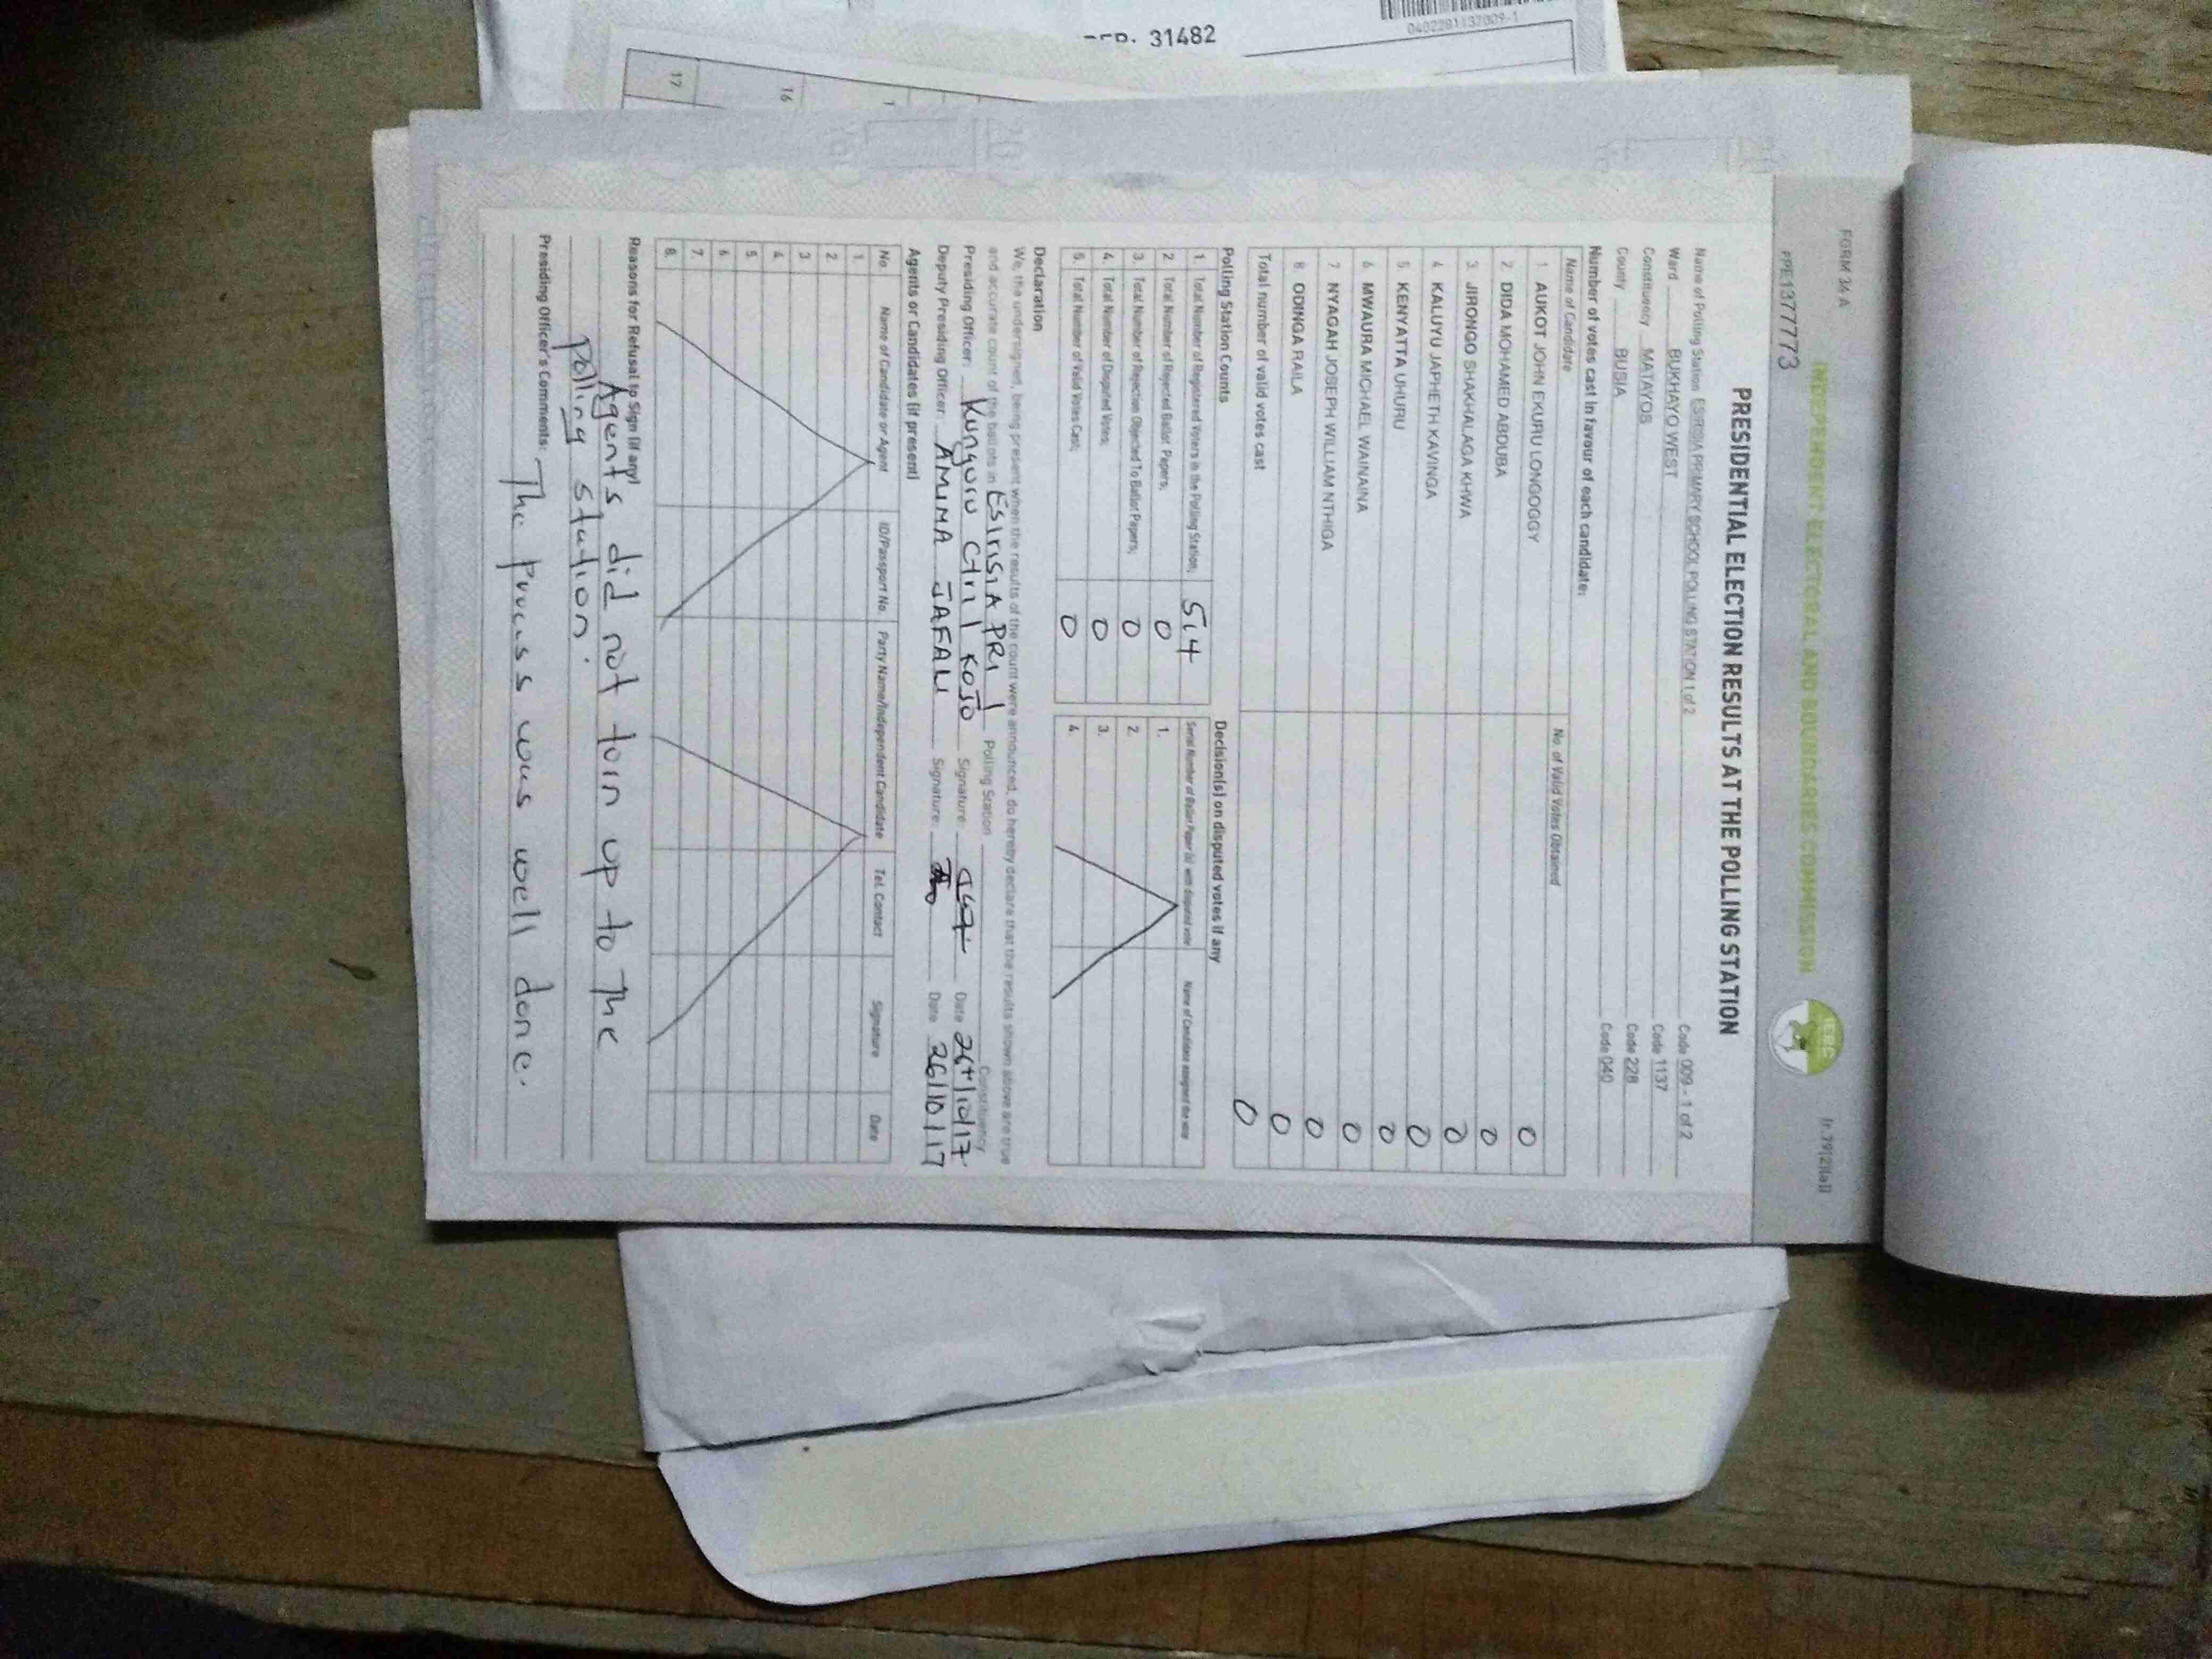 31482
0402281137009-1
17
16
1
FORM 34 A
[r.79(2)(a)]
INDEPENDENT ELECTORAL AND BOUNDARIES COMMISSION
IEBC
PPE1377773
PRESIDENTIAL ELECTION RESULTS AT THE POLLING STATION
Name of Polling Station ESIRISIA PRIMARY SCHOOL POLLING STATION 1 of 2 Code 009 - 1 of 2
Ward BUKHAYO WEST Code 1137
Constituency MATAYOS Code 228
County BUSIA Code 040
Number of votes cast in favour of each candidate:
Name of Candidate No. of Valid Votes Obtained
1. AUKOT JOHN EKURU LONGOGGY 0
2. DIDA MOHAMED ABDUBA 0
3. JIRONGO SHAKHALAGA KHWA 0
4. KALUYU JAPHETH KAVINGA 0
5. KENYATTA UHURU 0
6. MWAURA MICHAEL WAINAINA 0
7. NYAGAH JOSEPH WILLIAM NTHIGA 0
8. ODINGA RAILA 0
Total number of valid votes cast 0
Polling Station Counts
1. Total Number of Registered Voters in the Polling Station; 514
2. Total Number of Rejected Ballot Papers; 0
3. Total Number of Rejection Objected To Ballot Papers; 0
4. Total Number of Disputed Votes; 0
5. Total Number of Valid Votes Cast; 0
Decision(s) on disputed votes if any
Serial Number of Ballot Paper (s) with disputed vote Name of Candidate assigned the vote
1.
2.
3.
4.
Declaration
We, the undersigned, being present when the results of the count were announced, do hereby declare that the results shown above are true
and accurate count of the ballots in ESIRISIA PRI 1 Polling Station Constituency
Presiding Officer: Kunguru Ciril Kojo Signature: Date 26/10/17
Deputy Presiding Officer: AMIMA JAFALI Signature: Date 26/10/17
Agents or Candidates (if present)
No. Name of Candidate or Agent ID/Passport No. Party Name/Independent Candidate Tel. Contact Signature Date
1.
2.
3.
4.
5.
6.
7.
8.
Reasons for Refusal to Sign (if any)
Agents did not torn up to the
polling station.
Presiding Officer's Comments: The process was well done.